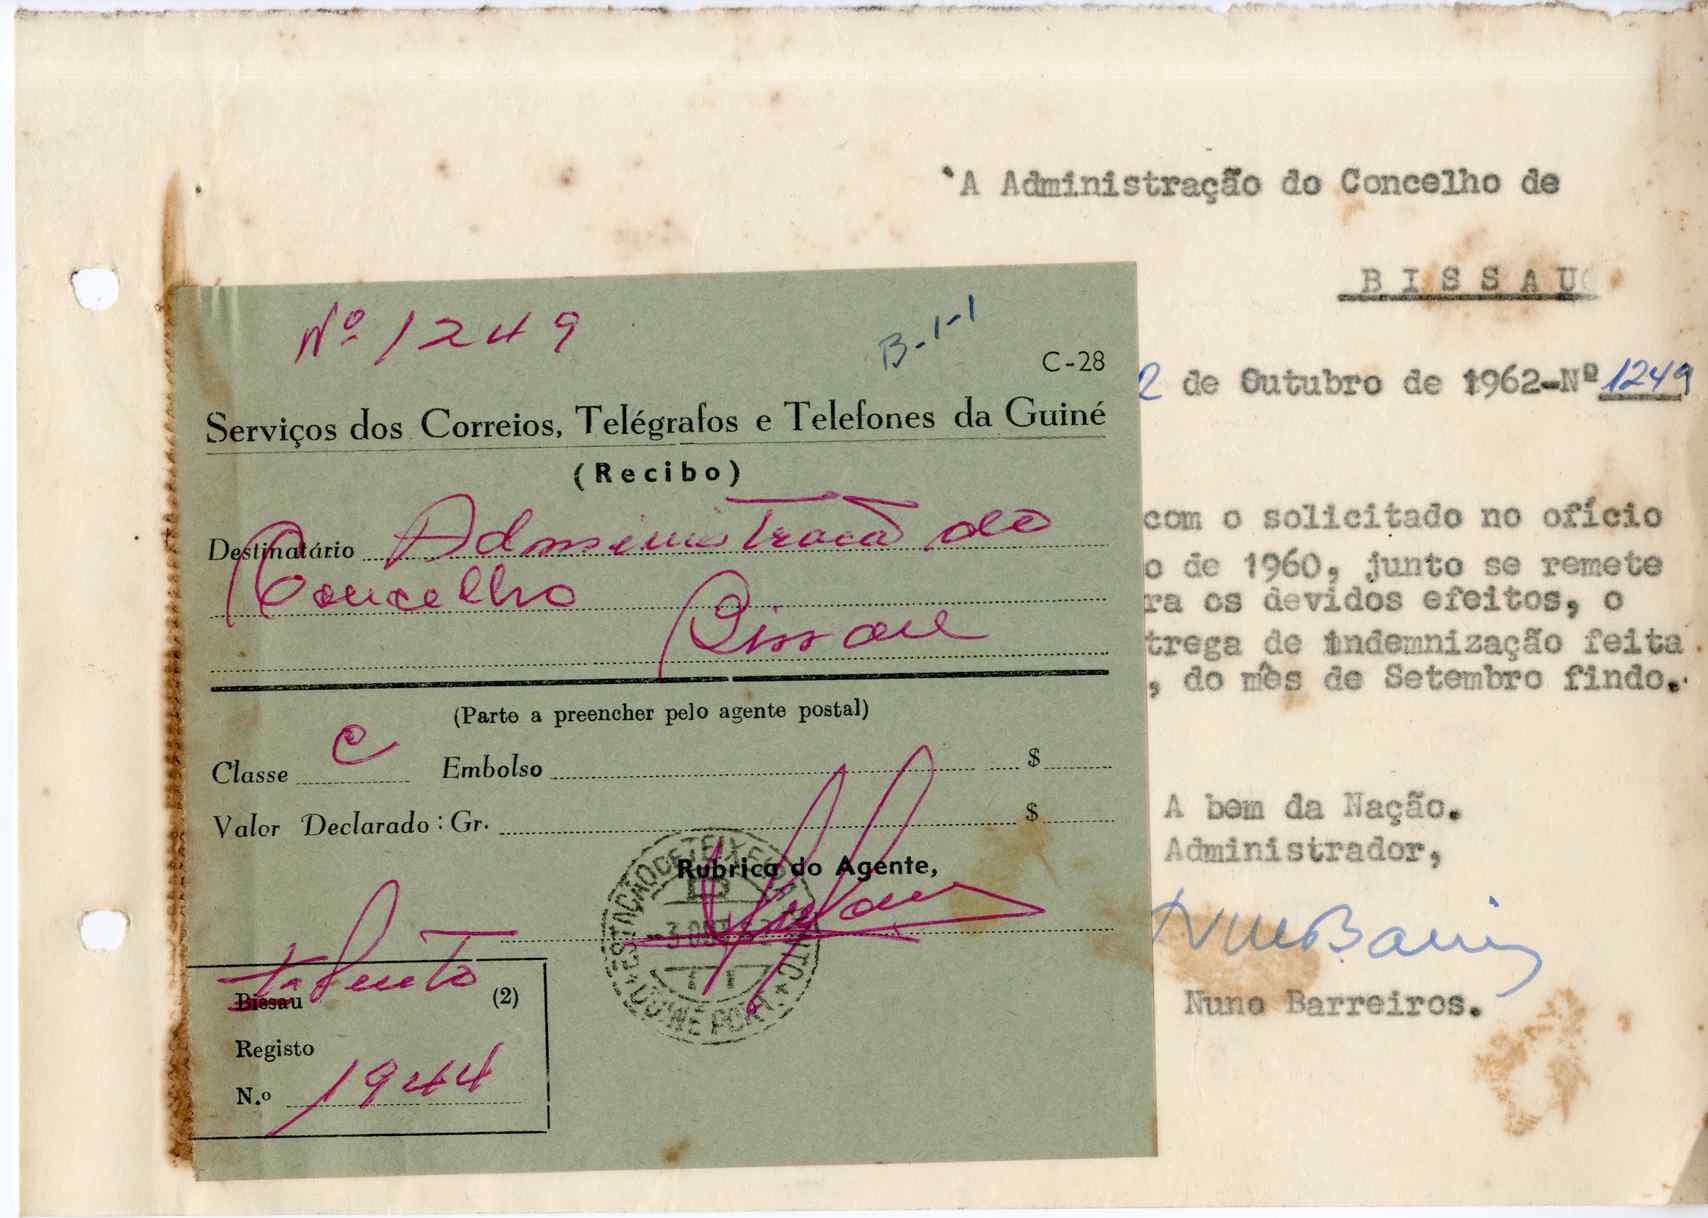 `A Administração do Concelho de
BISSAU
2 de Outubro de 1962-Nº 1249
com o solicitado no ofício
o de 1960, junto se remete
ra os devidos efeitos, o
trega de indemnização feita
, do mês de Setembro findo.
A bem da Nação.
Administrador,
Nuno Barreiros.
Nº 1249
B-1-1
C-28
Serviços dos Correios, Telégrafos e Telefones da Guiné
(Recibo)
Destinatário Administração do
Concelho
Bissau
(Parte a preencher pelo agente postal)
Classe C Embolso $
Valor Declarado: Gr. $
Rubrica do Agente,
ESTAÇÃO DE TEIXEIRA PINTO
GUINÉ PORT.
Bissau (2)
T. Pinto
Registo
N.º 1944